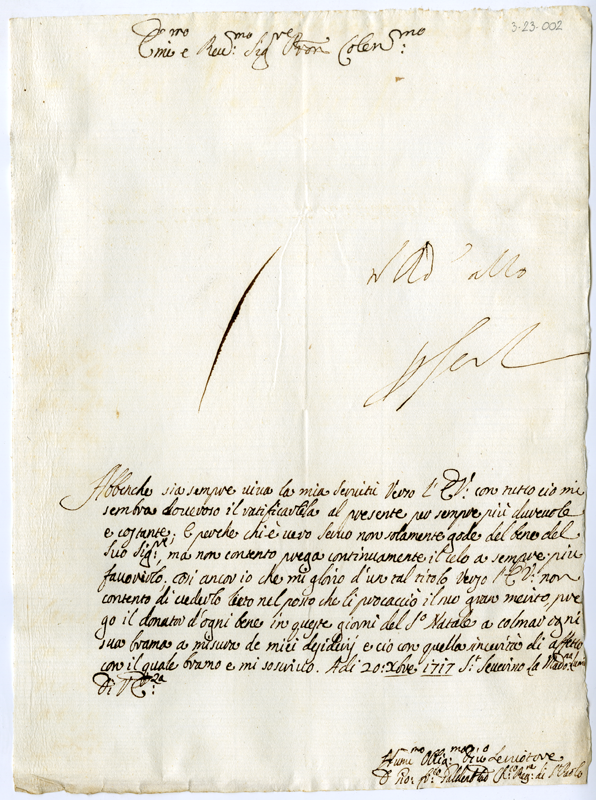 3-23-002
Emo e Reu:mo Sigre Pron Colen:mo
Abbenche sia sempre viva la mia servitù verso l'E.V: con tutto ciò mi
sembra doueroso il ratificarLela al presente per sempre più dureuole
e costante; E perche chi è uero seruo non solamente gode del bene del
suo Sigre, ma non contento prega continuamente il cielo a sempre più
fauorirlo. così ancor io che mi glorio d'un tal titolo verso l'E.V: non
contento di uederlo lieto nel posto che li procacciò il suo gran merito, pre
go il donator d'ogni bene in queste giorni del So Natale a colmar ogni
sua brama a misura de miei desiderij e ciò con quella sincerità di affetto
con il quale bramo e mi sosscriuo. Adi 20: Xbre 1717 St Seuerino la
Di V. Eza
Humo Obligmo